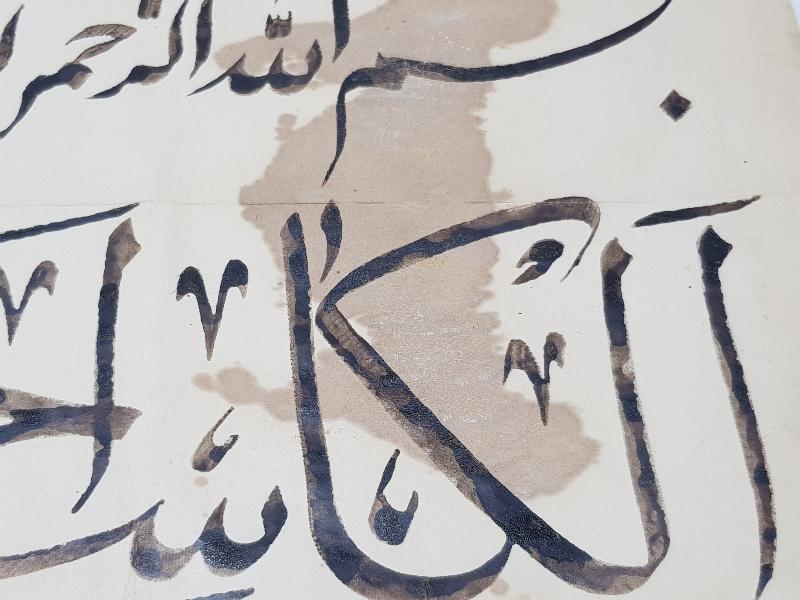 بسم الله الرحمن
الكاسب